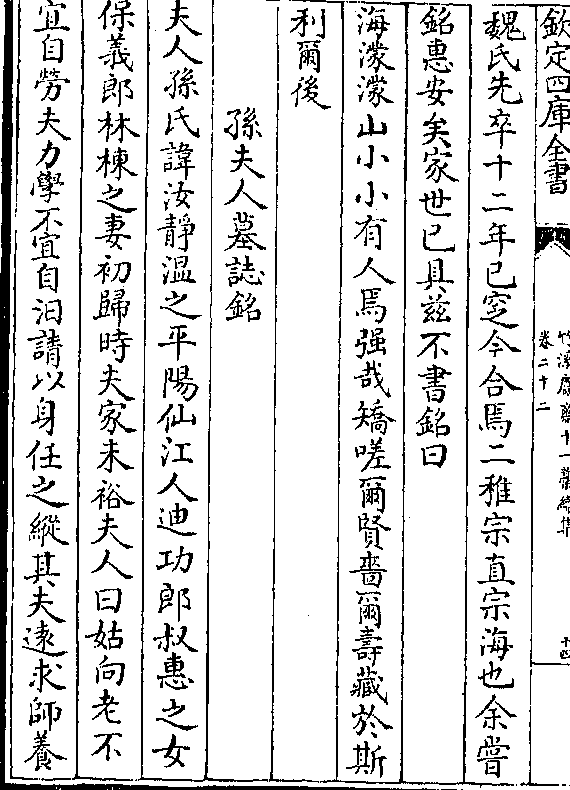 欽定四庫全書
竹溪鬳齋十一藁續集
卷二十二
十四
魏氏先卒十二年已窆今合焉二稚宗直宗海也余嘗
銘惠安矣家世已具茲不書銘曰
海濛濛山小小有人焉强哉矯嗟爾賢嗇爾壽藏於斯
利爾後
孫夫人墓誌銘
夫人孫氏諱汝靜溫之平陽仙江人迪功郎叔惠之女
保義郎林棟之妻初歸時夫家未裕夫人曰姑向老不
宜自勞夫力學不宜自汩請以身任之縱其夫逺求師養